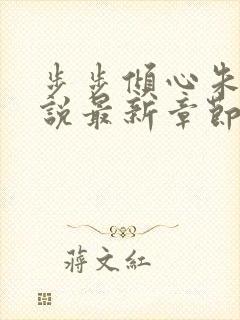 步步傾心朱
說最新章節
蔣文紅